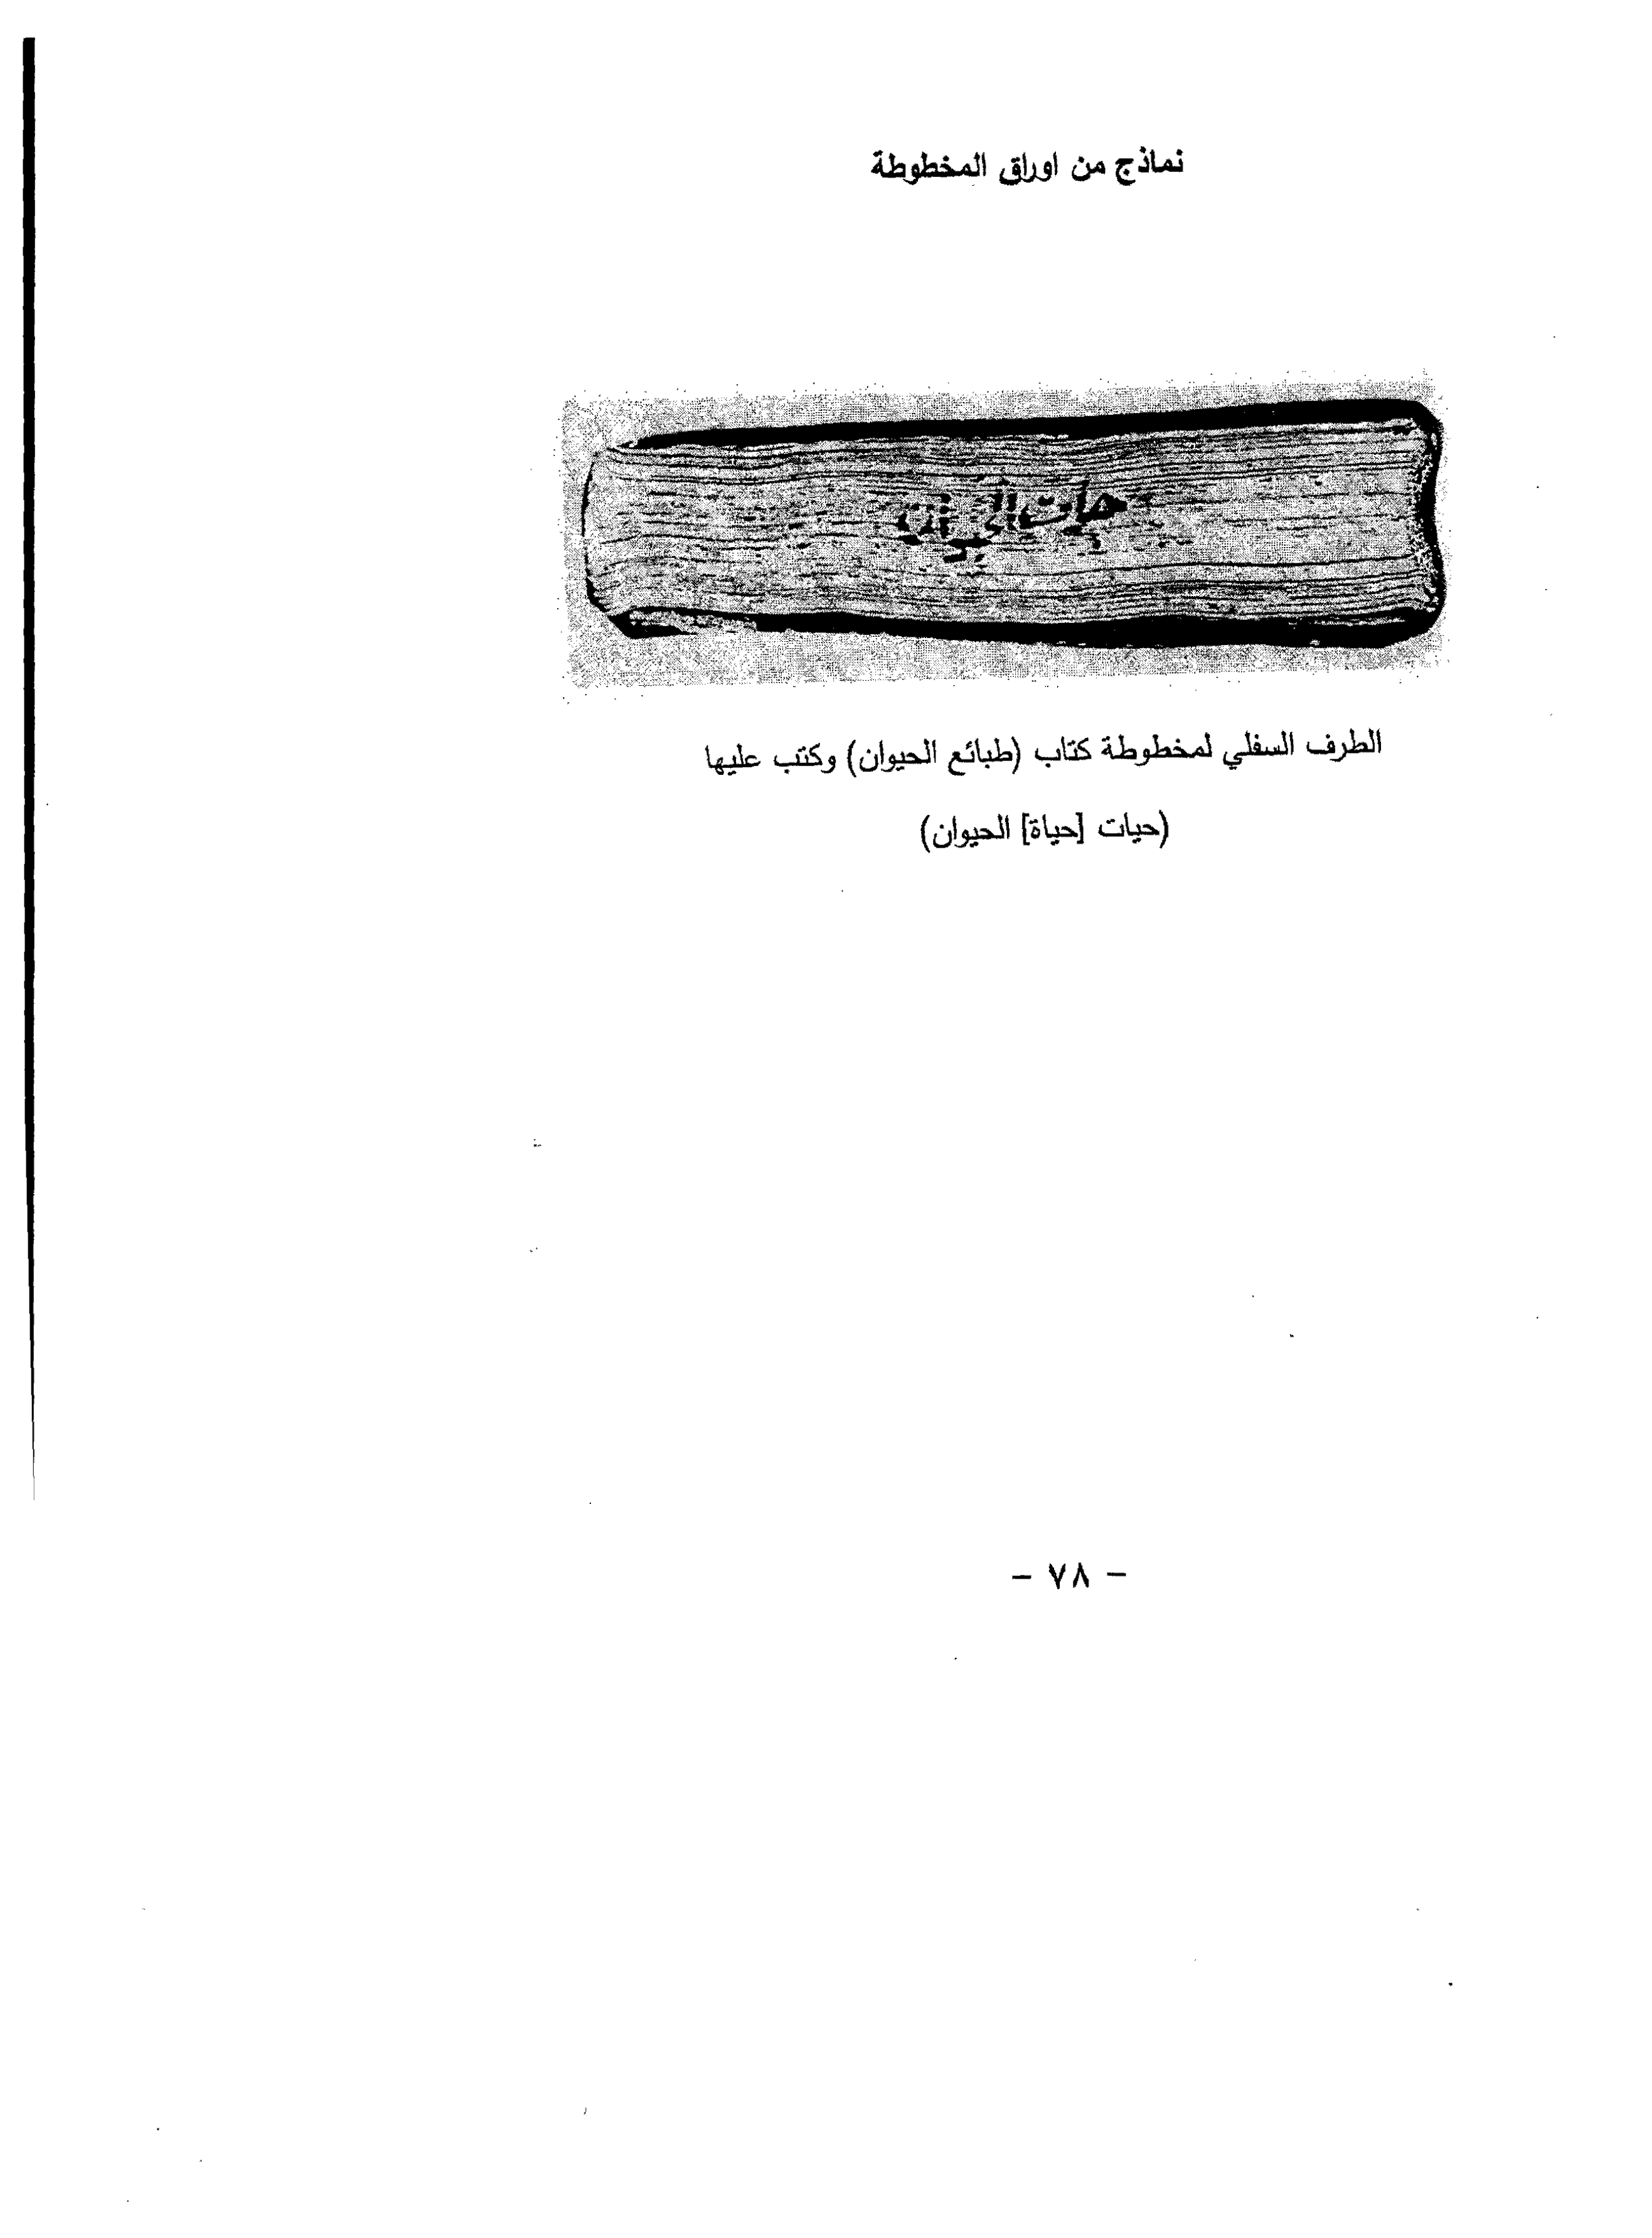 نماذج من اوراق المخطوطة
حيات الحيوان
الطرف السفلي لمخطوطة كتاب (طبائع الحيوان) وكتب عليها
(حيات [حياة] الحيوان)
- ٧٨ -